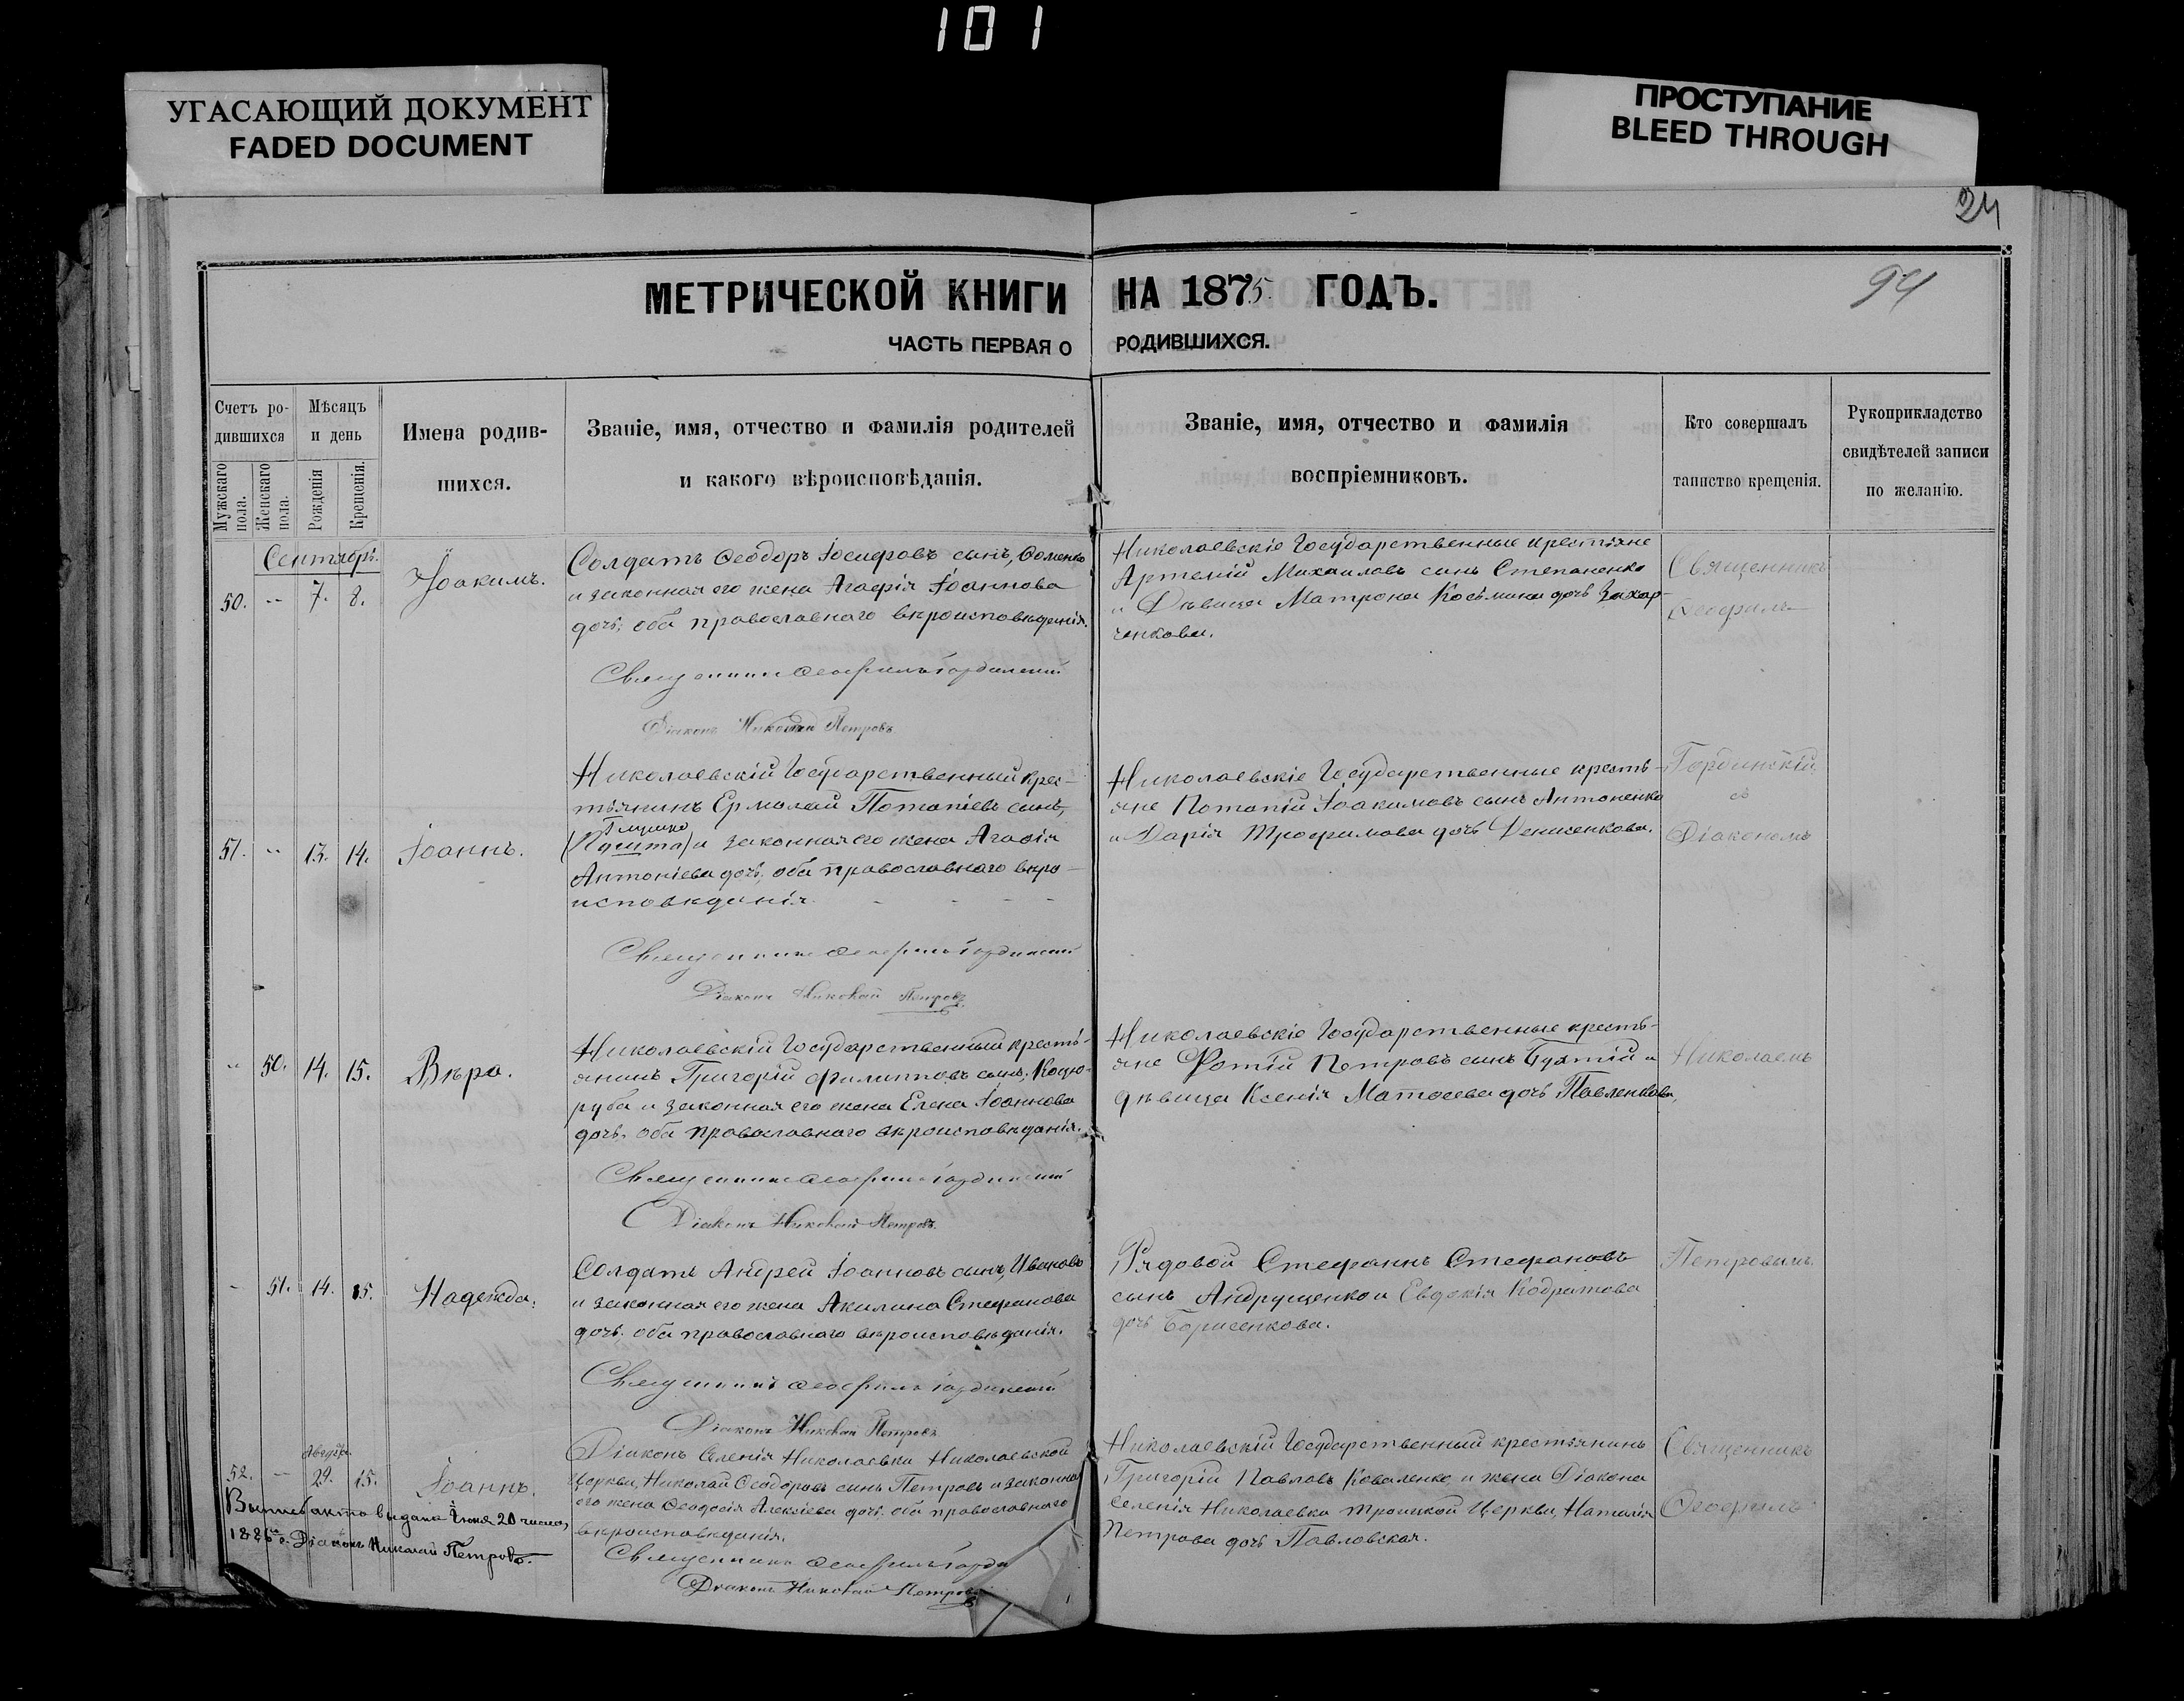 101
УГАСАЮЩИЙ ДОКУМЕНТ
FADED DOCUMENT
ПРОСТУПАНИЕ
BLEED THROUGH
24
94
МЕТРИЧЕСКОЙ КНИГИ НА 1875 ГОДЪ.
ЧАСТЬ ПЕРВАЯ О РОДИВШИХСЯ.
Счетъ ро-
дившихся
Мужскаго пола.
Женскаго пола.
Мѣсяцъ
и день
Рожденія
Крещенія.
Имена родив-
шихся.
Званіе, имя, отчество и фамилія родителей
и какого вѣроисповѣданія.
Званіе, имя, отчество и фамилія
воспріемниковъ.
Кто совершалъ
таинство крещенія.
Рукоприкладство
свидѣтелей записи
по желанію.
Сентябрь.
50. -- 7. 8.
Іоакимъ.
Солдатъ Ѳеодоръ Іосифовъ сынъ, Ѳоменко
и законная его жена Агафія Іоаннова
дочь; оба православнаго вѣроисповѣданія.
Священникъ Ѳеофилъ Гординскій
Діаконъ Николай Петровъ
Николаевскіе Государственные крестьяне
Артемій Михаиловъ сынъ Степаненко
и Дѣвица Матрона Косьмина дочь Захар-
ченкова.
Священникъ
Ѳеофилъ
51. -- 13. 14.
Іоаннъ.
Николаевскій Государственный крес-
тьянинъ Ермолай Потапіевъ сынъ,
и законная его жена Агафія
Антоніева дочь, оба православнаго вѣро-
исповѣданія.
Священникъ Ѳеофилъ Гординскій
Діаконъ Николай Петровъ.
Николаевскіе Государственные кресть-
яне Потапій Іоакимовъ сынъ Антоненко
и Дарія Трофимова дочь Денисенкова.
Гординскій
съ
Діакономъ
-- 50. 14. 15.
Вѣра.
Николаевскій Государственный кресть-
янинъ Григорій Филипповъ сынъ, Коцю-
руба и законная его жена Елена Іоаннова
дочь, оба православнаго вѣроисповѣданія.
Священникъ Ѳеофилъ Гординскій
Діаконъ Николай Петровъ.
Николаевскіе Государственные кресть-
яне Фотій Петровъ сынъ и
дѣвица Ксенія Матѳеева дочь Павленкова,
Николаемъ
- 51. 14. 15.
Надежда.
Солдатъ Андрей Іоанновъ сынъ, Ивановъ
и законная его жена Акилина Стефанова
дочь, оба православнаго вѣроисповѣданія.
Священникъ Ѳеофилъ Гординскій
Діаконъ Николай Петровъ
Рядовой Стефанъ Стефановъ
сынъ Андрущенко и Евдокія Кодратова
дочь Борисенкова.
Петровымъ.
52. -- 29. 15.
Іоаннъ.
Діаконъ Селенія Николаевки Николаевской
Церкви, Николай Ѳеодоровъ сынъ Петровъ и законная
его жена Ѳеодосія Алексіева дочь, оба православнаго
вѣроисповѣданія.
Священникъ Ѳеофилъ Горди
Діаконъ Николай Петровъ
Николаевскій Государственный крестьянинъ
Григорій Павловъ Коваленко, и жена Діакона
Селенія Николаевки Троицкой Церкви, Наталія
Петрова дочь Павловская.
Священникъ
Ѳеофилъ
выдана Іюня 20 числа,
1886 г. Діаконъ Николай Петровъ.